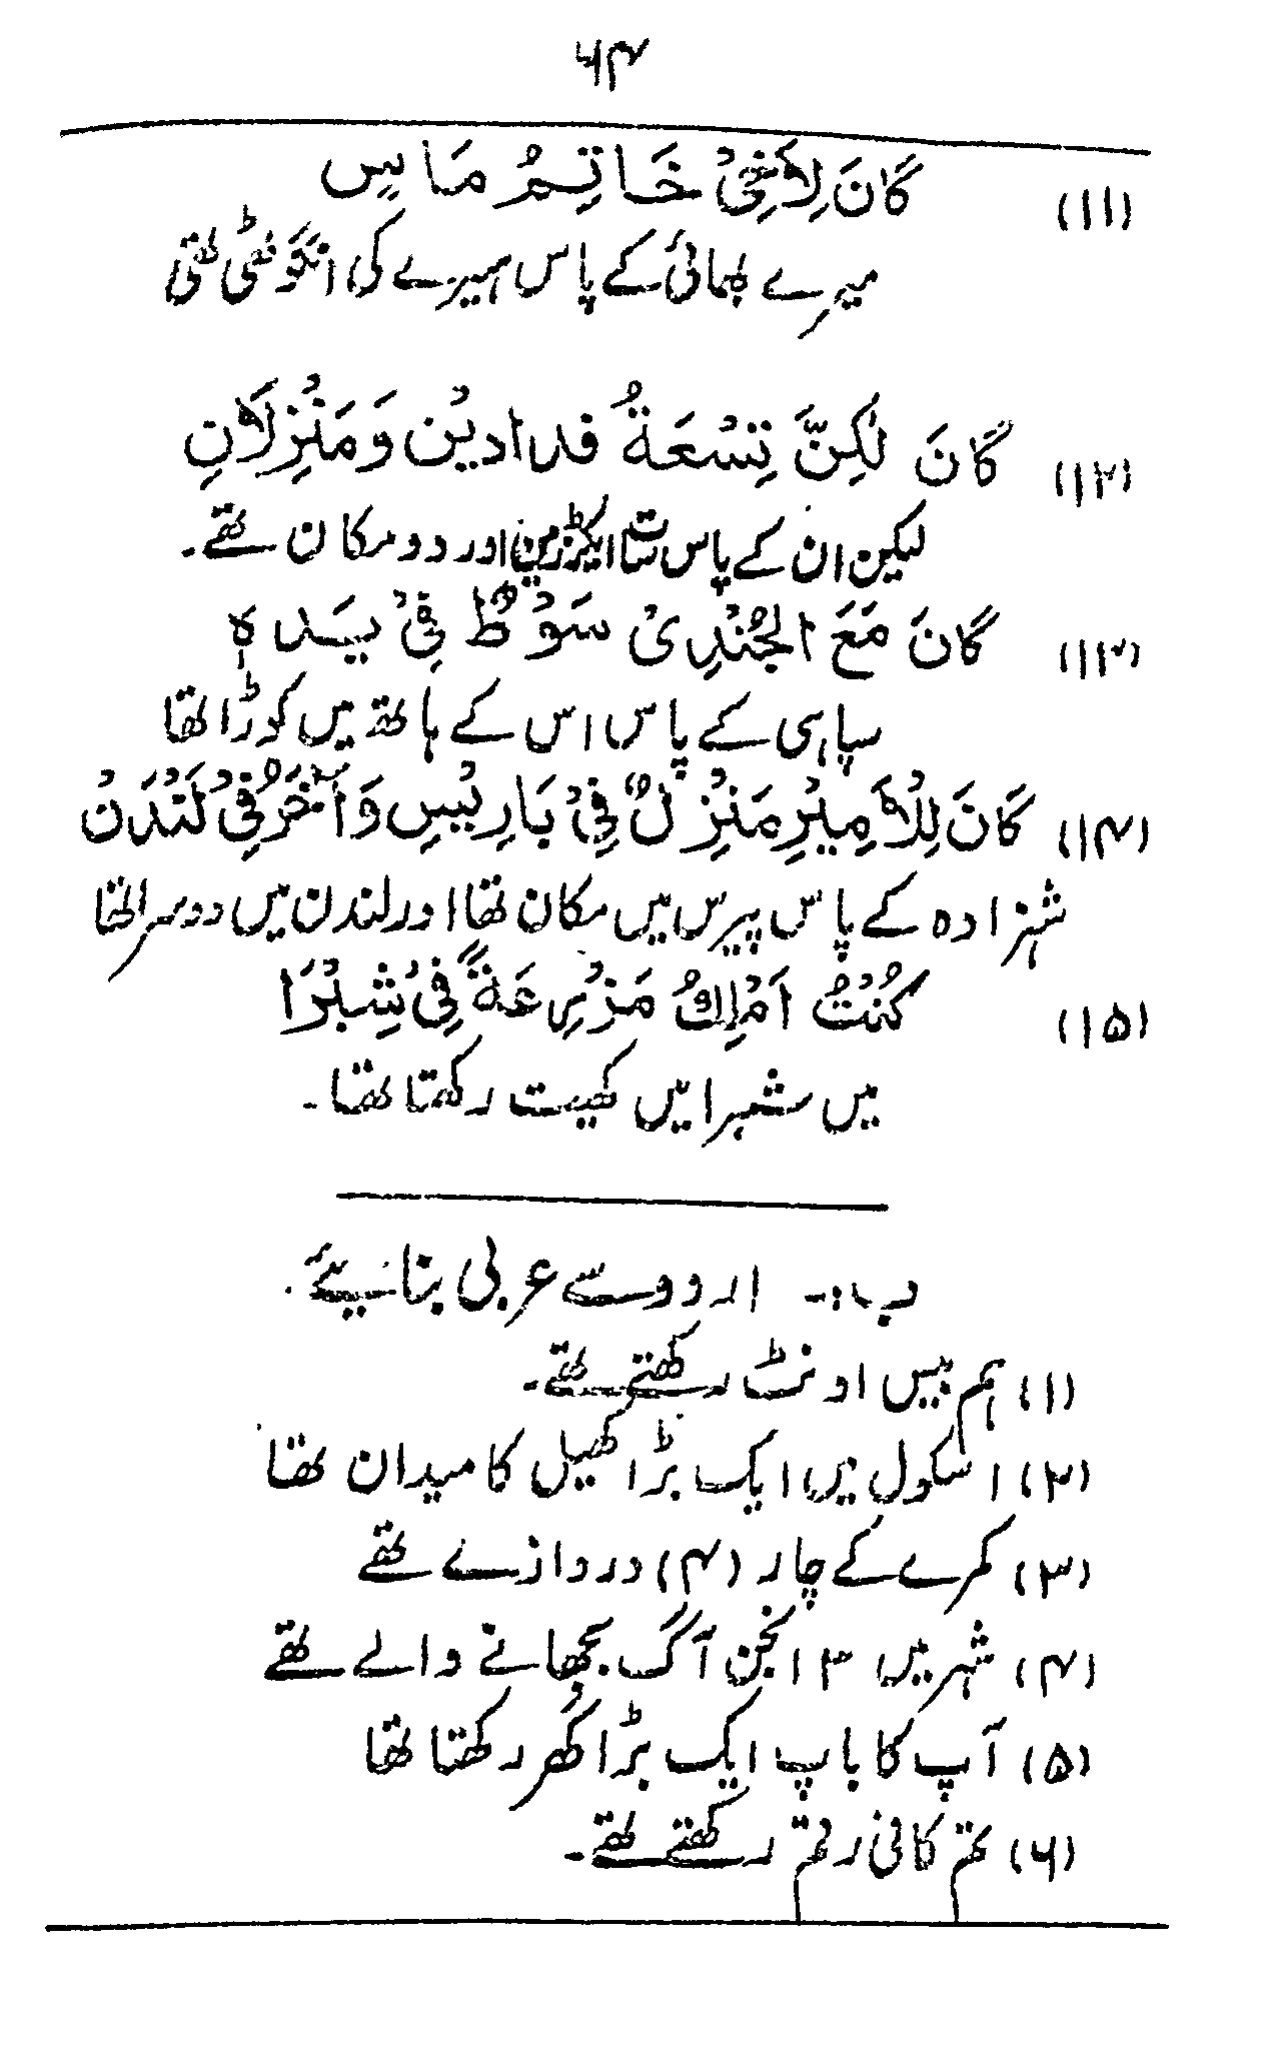 ۶۴
(۱۱) كَانَ لِأَخِيْ خَاتِمُ مَاسٍ
میرے بھائی کے پاس ہیرے کی انگوٹھی تھی
(۱۲) كَانَ لٰكِنَّ تِسْعَةُ فدادیْن وَمَنْزِلَانِ
لیکن ان کے پاس سات ایکڑ زمین اور دو مکان تھے۔
(۱۳) كَانَ مَعَ الجُنْدِیْ سَوْطٌ فِیْ یَدہٖ
سپاہی کے پاس اس کے ہاتھ میں کوڑا تھا
(۱۴) كَانَ لِلْأَمِيْرِ مَنْزِلٌ فِیْ بَارِیْسِ وَآخَرُ فِیْ لَنْدَنْ
شہزادہ کے پاس پیرس میں مکان تھا اور لندن میں دوسرا تھا
(۱۵) كُنْتُ اَمْلِكُ مَزْرِعَةً فِیْ شِبْرَا
میں شبرا میں کھیت رکھتا تھا۔
ب:۔ اردو سے عربی بنائیے۔
(۱) ہم بیس اونٹ رکھتے تھے۔
(۲) اسکول میں ایک بڑا کھیل کا میدان تھا
(۳) کمرے کے چار (۴) دروازے تھے
(۴) شہر میں ۳ انجن آگ بجھانے والے تھے
(۵) آپ کا باپ ایک بڑا گھر رکھتا تھا
(۶) تم کافی رقم رکھتے تھے۔